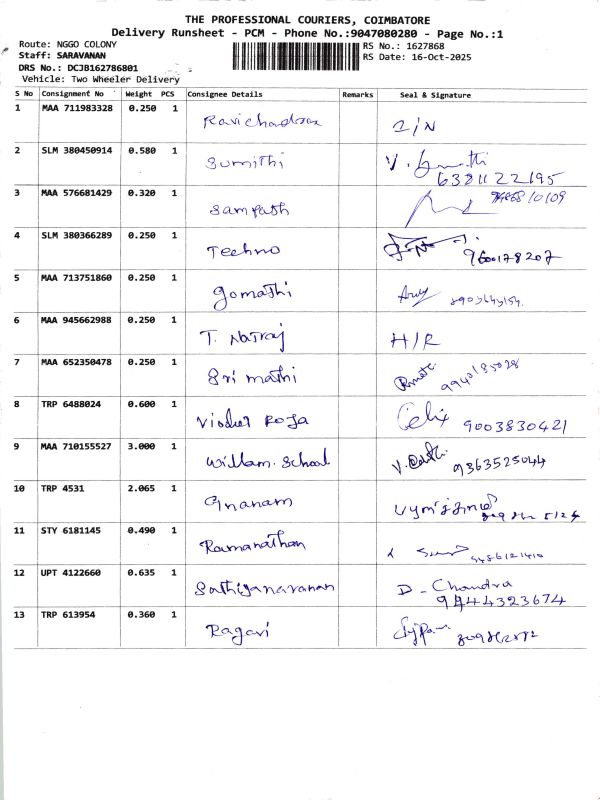 THE PROFESSIONAL COURIERS, COIMBATORE
Delivery Runsheet - PCM - Phone No.:9047080280 - Page No.:1
Route: NGGO COLONY RS No.: 1627868
Staff: SARAVANAN RS Date: 16-Oct-2025
DRS No.: DCJB162786801
Vehicle: Two Wheeler Delivery
S No Consignment No Weight PCS Consignee Details Remarks Seal & Signature
1 MAA 711983328 0.250 1 Ravichadran
2 SLM 380450914 0.580 1 Sumithi 6381122195
3 MAA 576681429 0.320 1 Sampath
4 SLM 380366289 0.250 1 Techno 9600178207
5 MAA 713751860 0.250 1 Gomathi
6 MAA 945662988 0.250 1 T. Natraj H/R
7 MAA 652350478 0.250 1 Sri mathi 9940185028
8 TRP 6488024 0.600 1 Roja Celix 9003830421
9 MAA 710155527 3.000 1 Willam. School 9363525044
10 TRP 4531 2.065 1 Gnanam
11 STY 6181145 0.490 1 Ramanathan
12 UPT 4122660 0.635 1 Sathiyanarayanan D - Chandra
9444323674
13 TRP 613954 0.360 1 Ragavi